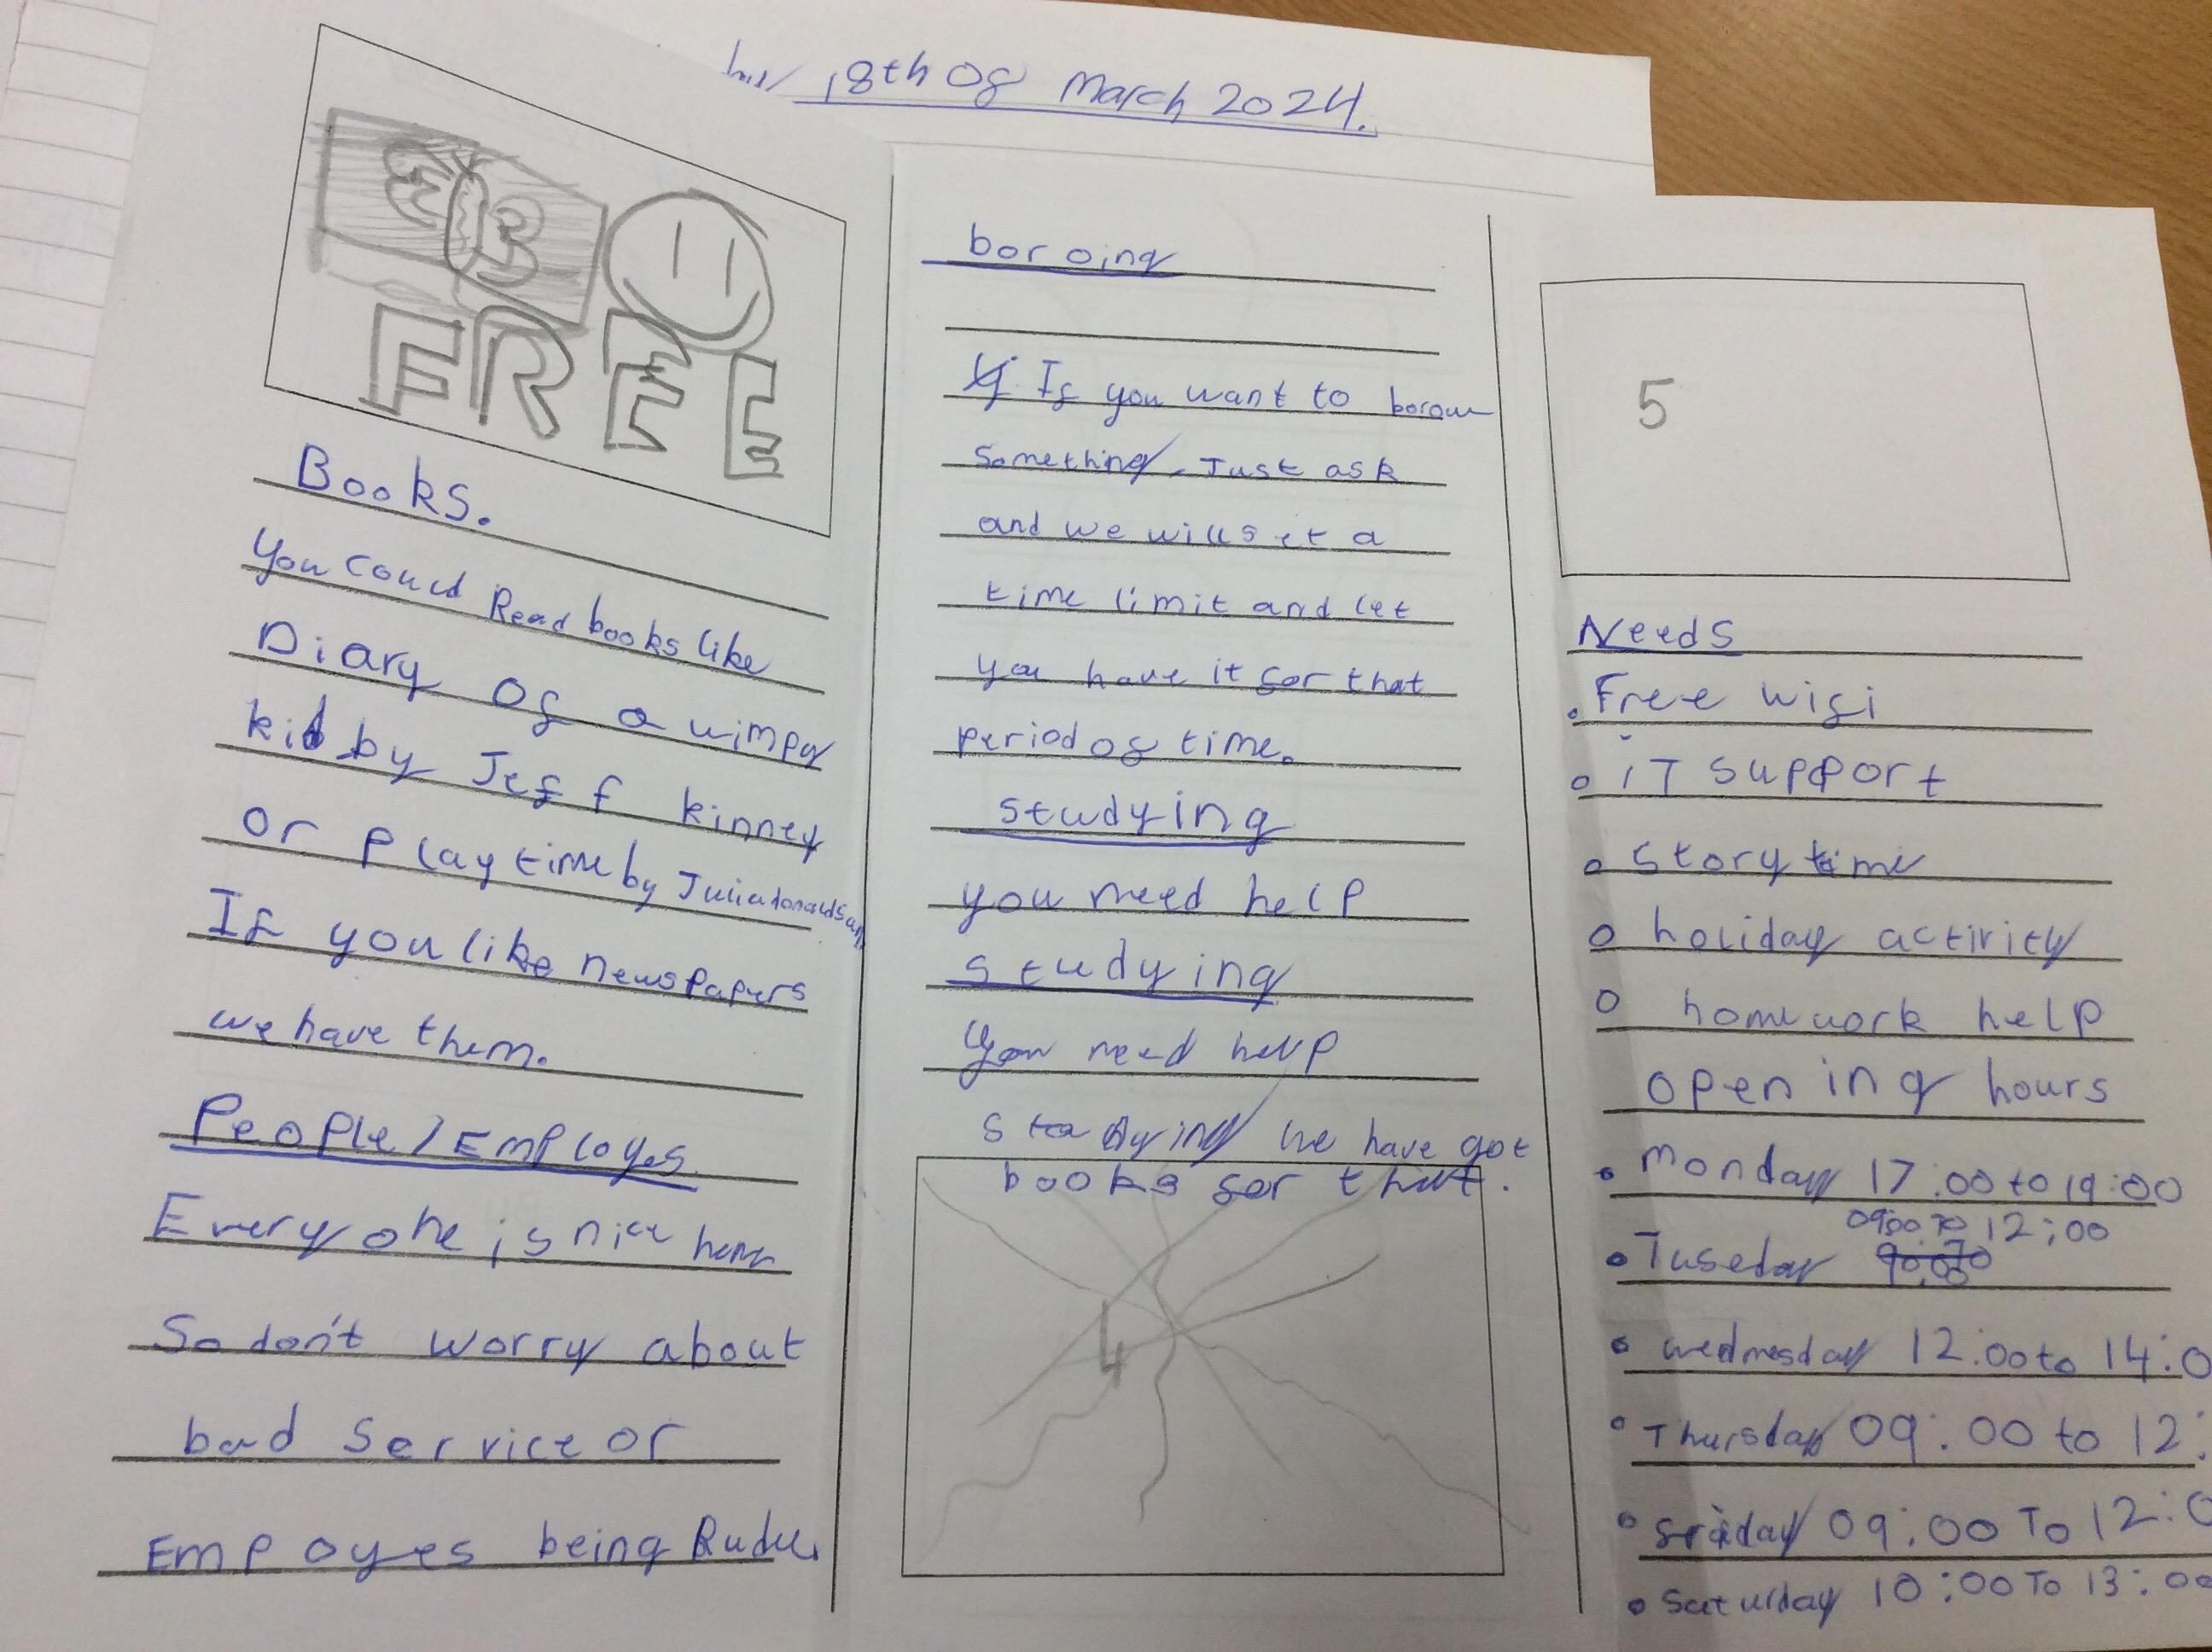 18th Of March 2024.
FREE
Books.
You could Read books like
Diary Of a wimpy
kid by Jeff kinney
or Playtime by Julia donaldson
If you like newspapers
we have them.
People/Employes
Everyone is nice here
So don't worry about
bad service or
Empoyes being Rude.
boroing
If you want to borow
something. Just ask
and we will set a
time limit and let
you have it for that
period of time.
studying
you need help
studying
You need help
studying we have got
books for that.
4
5
Needs
Free wifi
iT support
story time
holiday activity
homework help
opening hours
Monday 17:00 to 19:00
09:00 To 12:00
Tuseday
wednesday 12:00 to 14:0
Thursday 09:00 to 12:
friday 09:00 To 12:0
Saturday 10:00 To 13:00